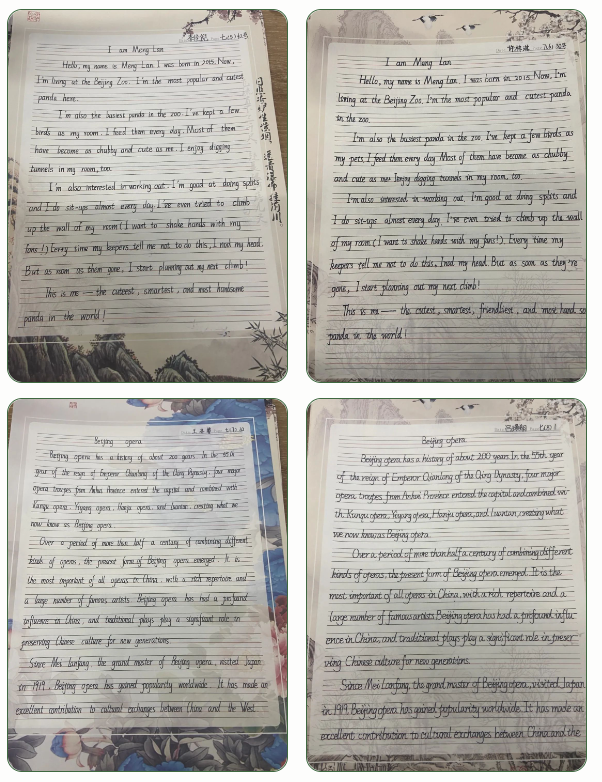 I am Meng Lan
Hello, my name is Meng Lan. I was born in 2015. Now,
I'm living at the Beijing Zoo. I'm the most popular and cutest
panda here.
I'm also the busiest panda in the zoo. I've kept a few
birds as my room. I feed them every day. Most of them
have become as chubby and cute as me. I enjoy digging
tunnels in my room, too.
I'm also interested in working out. I'm good at doing splits
and I do sit-ups almost every day. I've even tried to climb
up the wall of my room (I want to shake hands with my
fans!) Every time my keepers tell me not to do this, I nod my head.
But as soon as them gone, I start planning out my next climb!
This is me — the cutest, smartest, and most handsome
panda in the world!
I am Meng Lan
Hello, my name is Meng Lan. I was born in 2015. Now, I'm
living at the Beijing Zoo. I'm the most popular and cutest panda
in the zoo.
I'm also the busiest panda in the zoo. I've kept a few birds as
my pets. I feed them every day. Most of them have become as chubby
and cute as me. I enjoy digging tunnels in my room, too.
I'm also interested in working out. I'm good at doing splits and
I do sit-ups almost every day. I've even tried to climb up the wall
of my room (I want to shake hands with my fans!). Every time my
keepers tell me not to do this, I nod my head. But as soon as they're
gone, I start planning out my next climb!
This is me — the cutest, smartest, friendliest, and most hand so
panda in the world!
Beijing opera
Beijing opera has a history of about 200 years. In the 55th
year of the reign of Emperor Qianlong of the Qing Dynasty, four major
opera troupes from Anhui Province entered the capital and combined with
Kunqu opera, Yiyang opera, Hanju opera and Luantan, creating what we
now know as Beijing opera.
Over a period of more than half a century of combining different
kinds of operas, the present form of Beijing opera emerged. It is
the most important of all operas in China, with a rich repertoire and
a large number of famous artists. Beijing opera has had a profound
influence in China, and traditional plays play a significant role in
preserving Chinese culture for new generations.
Since Mei Lanfang, the grand master of Beijing opera, visited Japan
in 1919, Beijing opera has gained popularity worldwide. It has made an
excellent contribution to cultural exchanges between China and the West
Beijing opera
Beijing opera has a history of about 200 years. In the 55th year
of the reign of Emperor Qianlong of the Qing Dynasty, four major
opera troupes from Anhui Province entered the capital and combined wi-
th Kunqu opera, Yiyang opera, Hanju opera, and Luantan, creating what
we now know as Beijing opera.
Over a period of more than half a century of combining different
kinds of operas, the present form of Beijing opera emerged. It is the
most important of all operas in China, with a rich repertoire and a
large number of famous artists. Beijing opera has had a profound influ-
ence in China, and traditional plays play a significant role in preser-
ving Chinese culture for new generations.
Since Mei Lanfang, the grand master of Beijing opera, visited Japan
in 1919, Beijing opera has gained popularity worldwide. It has made an
excellent contribution to cultural exchanges between China and the